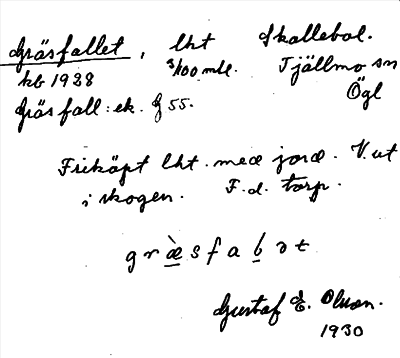 Gräsfallet, lht Skallebol.
kb 1928 3/100 mtl. Tjällmo sn
Gräsfall: ek. G 55. Ögl
Friköpt lht. med jord. V. ut
i skogen. F.d. torp.
græ̀sfabət
Gustaf E. Olson.
1930